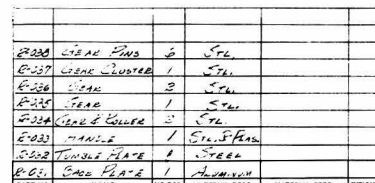 E-038 GEAR PINS 6 STL.
E-037 GEAR CLUSTER 1 STL.
E-036 GEAR 3 STL.
E-035 GEAR 1 STL.
E-034 GEAR & ROLLER 2 STL.
E-033 HANDLE 1 STL. & PLAS.
E-032 TUMBLE PLATE 1 STEEL
E-031 BASE PLATE 1 ALUMINUM